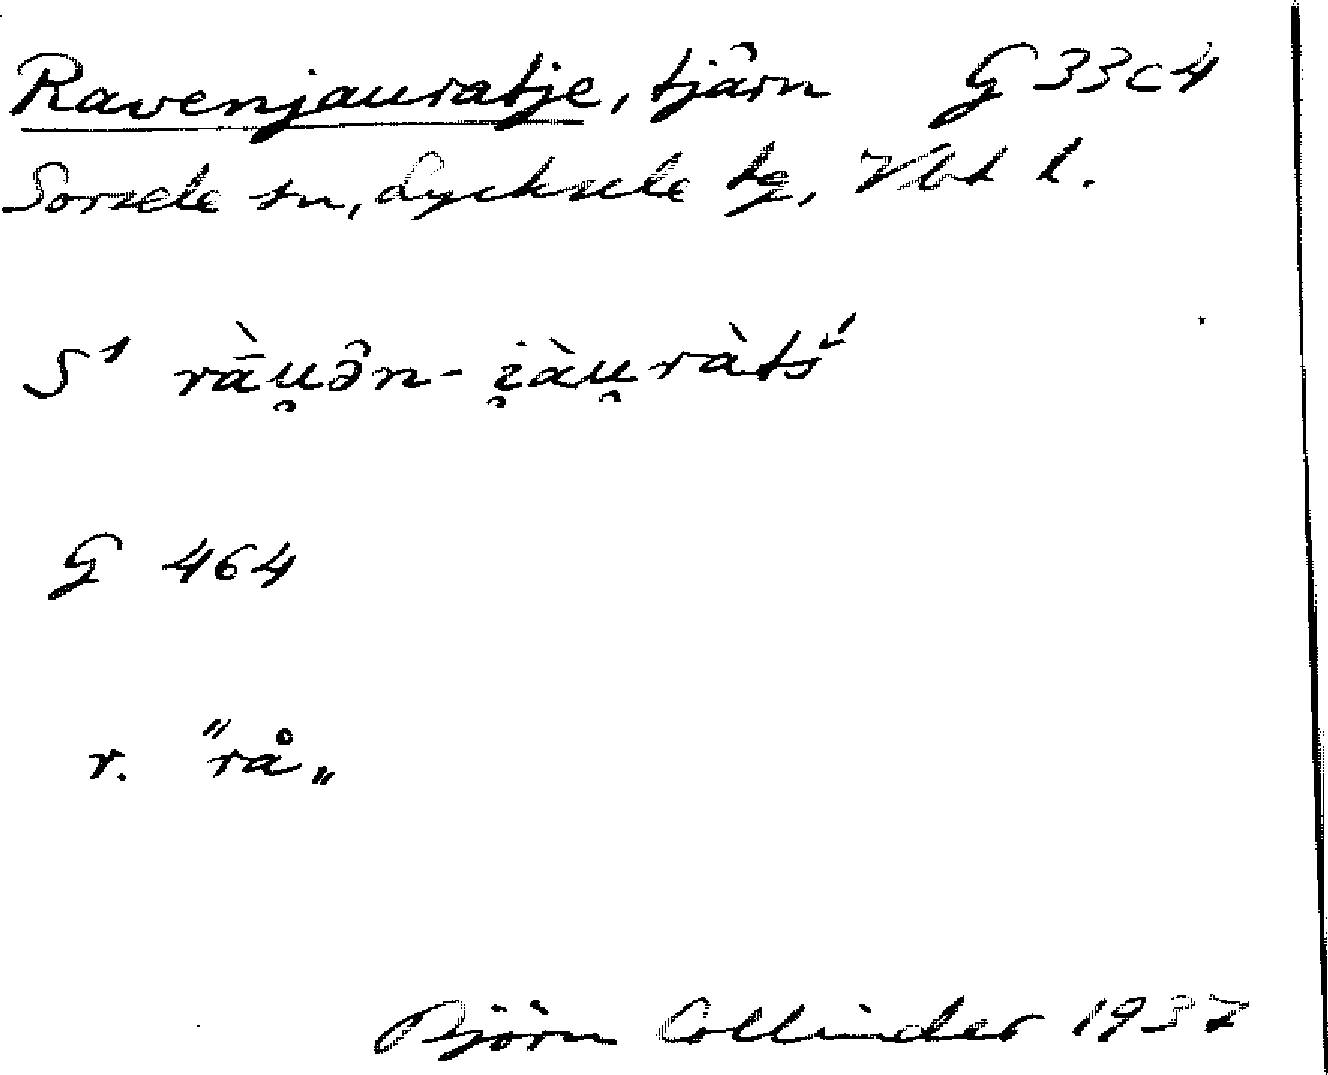 Ravenjauratje, tjärn G 33c4
Sorsele sn, Lycksele tg, Vbt l.
S¹ rā̀u̯ən- i̯àu̯ràtś
G 464
r. "rå„
Björn Collinder 1937